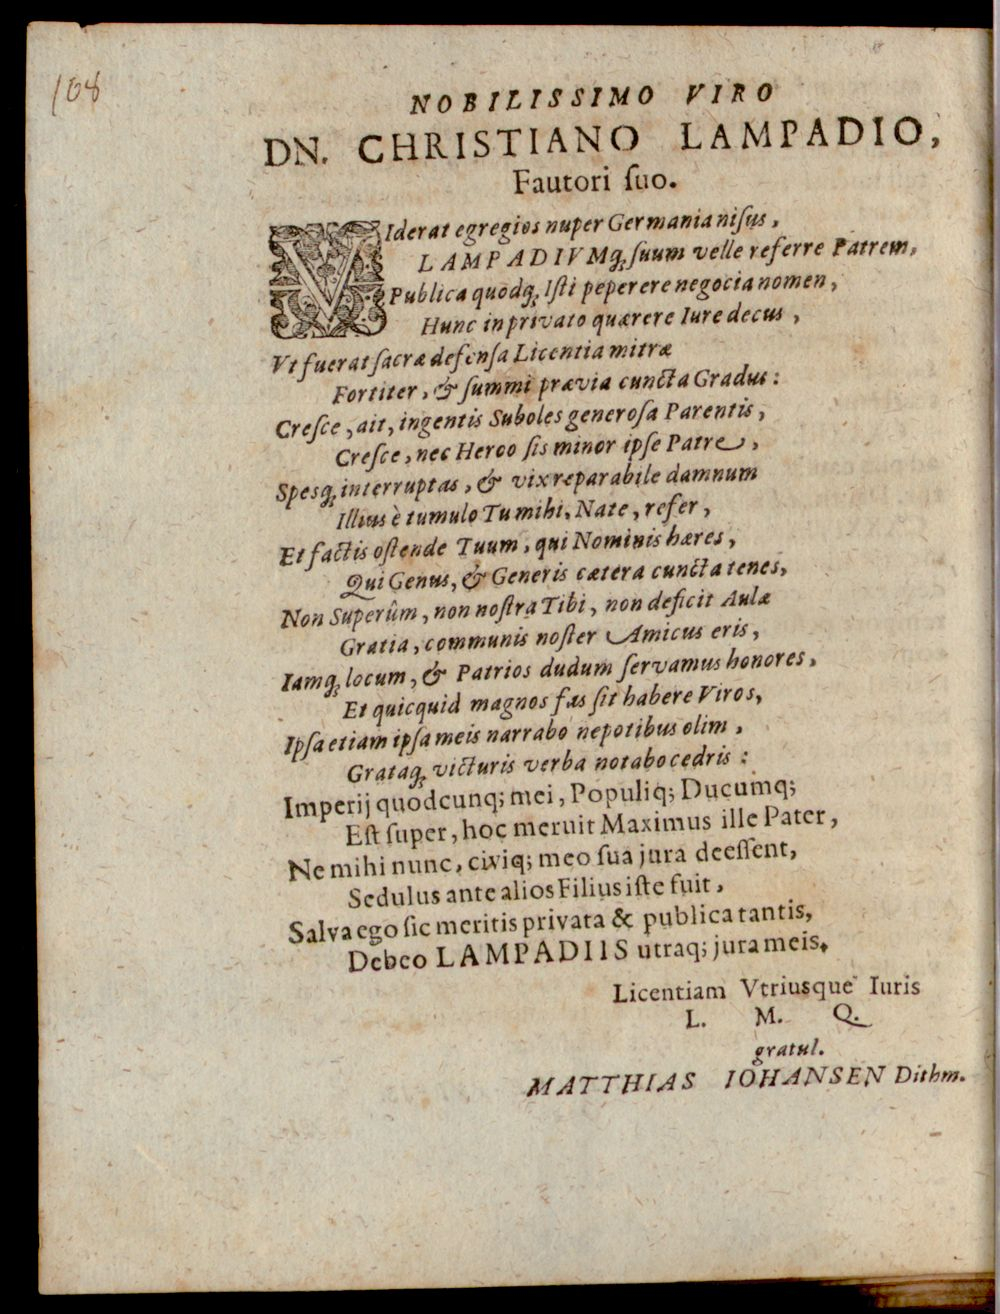 108
NOBILISSIMO VIRO
DN. CHRISTIANO LAMPADIO,
Fautori ſuo.
VIderat egregios nuper Germania niſus,
LAMPADIVMq́ꝫ ſuum velle referre Patrem,
Publica quodq́ꝫ Iſti peperere negocia nomen,
Hunc in privato quærere Iure decus,
Vt fuerat ſacræ defenſa Licentia mitræ
Fortiter, & ſummi prævia cuncta Gradus:
Creſce, ait, ingentis Suboles generoſa Parentis,
Creſce, nec Heroo ſis minor ipſe Patre,
Spesq́ꝫ interruptas, & vix reparabile damnum
Illius è tumulo Tu mihi, Nate, refer,
Et factis oſtende Tuum, qui Nominis hæres,
Qui Genus, & Generis cætera cuncta tenes,
Non Superûm, non noſtra Tibi, non deficit Aulæ
Gratia, communis noſter Amicus eris,
Iamq́ꝫ locum, & Patrios dudum ſervamus honores,
Et quicquid magnos fas ſit habere Viros,
Ipſa etiam ipſa meis narrabo nepotibus olim,
Grataq́ꝫ victuris verba notabo cedris:
Imperij quodcunq; mei, Populiq; Ducumq;
Eſt ſuper, hoc meruit Maximus ille Pater,
Ne mihi nunc, civiq; meo ſua jura deeſſent,
Sedulus ante alios Filius iſte fuit,
Salva ego ſic meritis privata & publica tantis,
Debeo LAMPADIIS utraq; jura meis.
Licentiam Vtriusque Iuris
L. M. Q.
gratul.
MATTHIAS IOHANSEN Dithm.